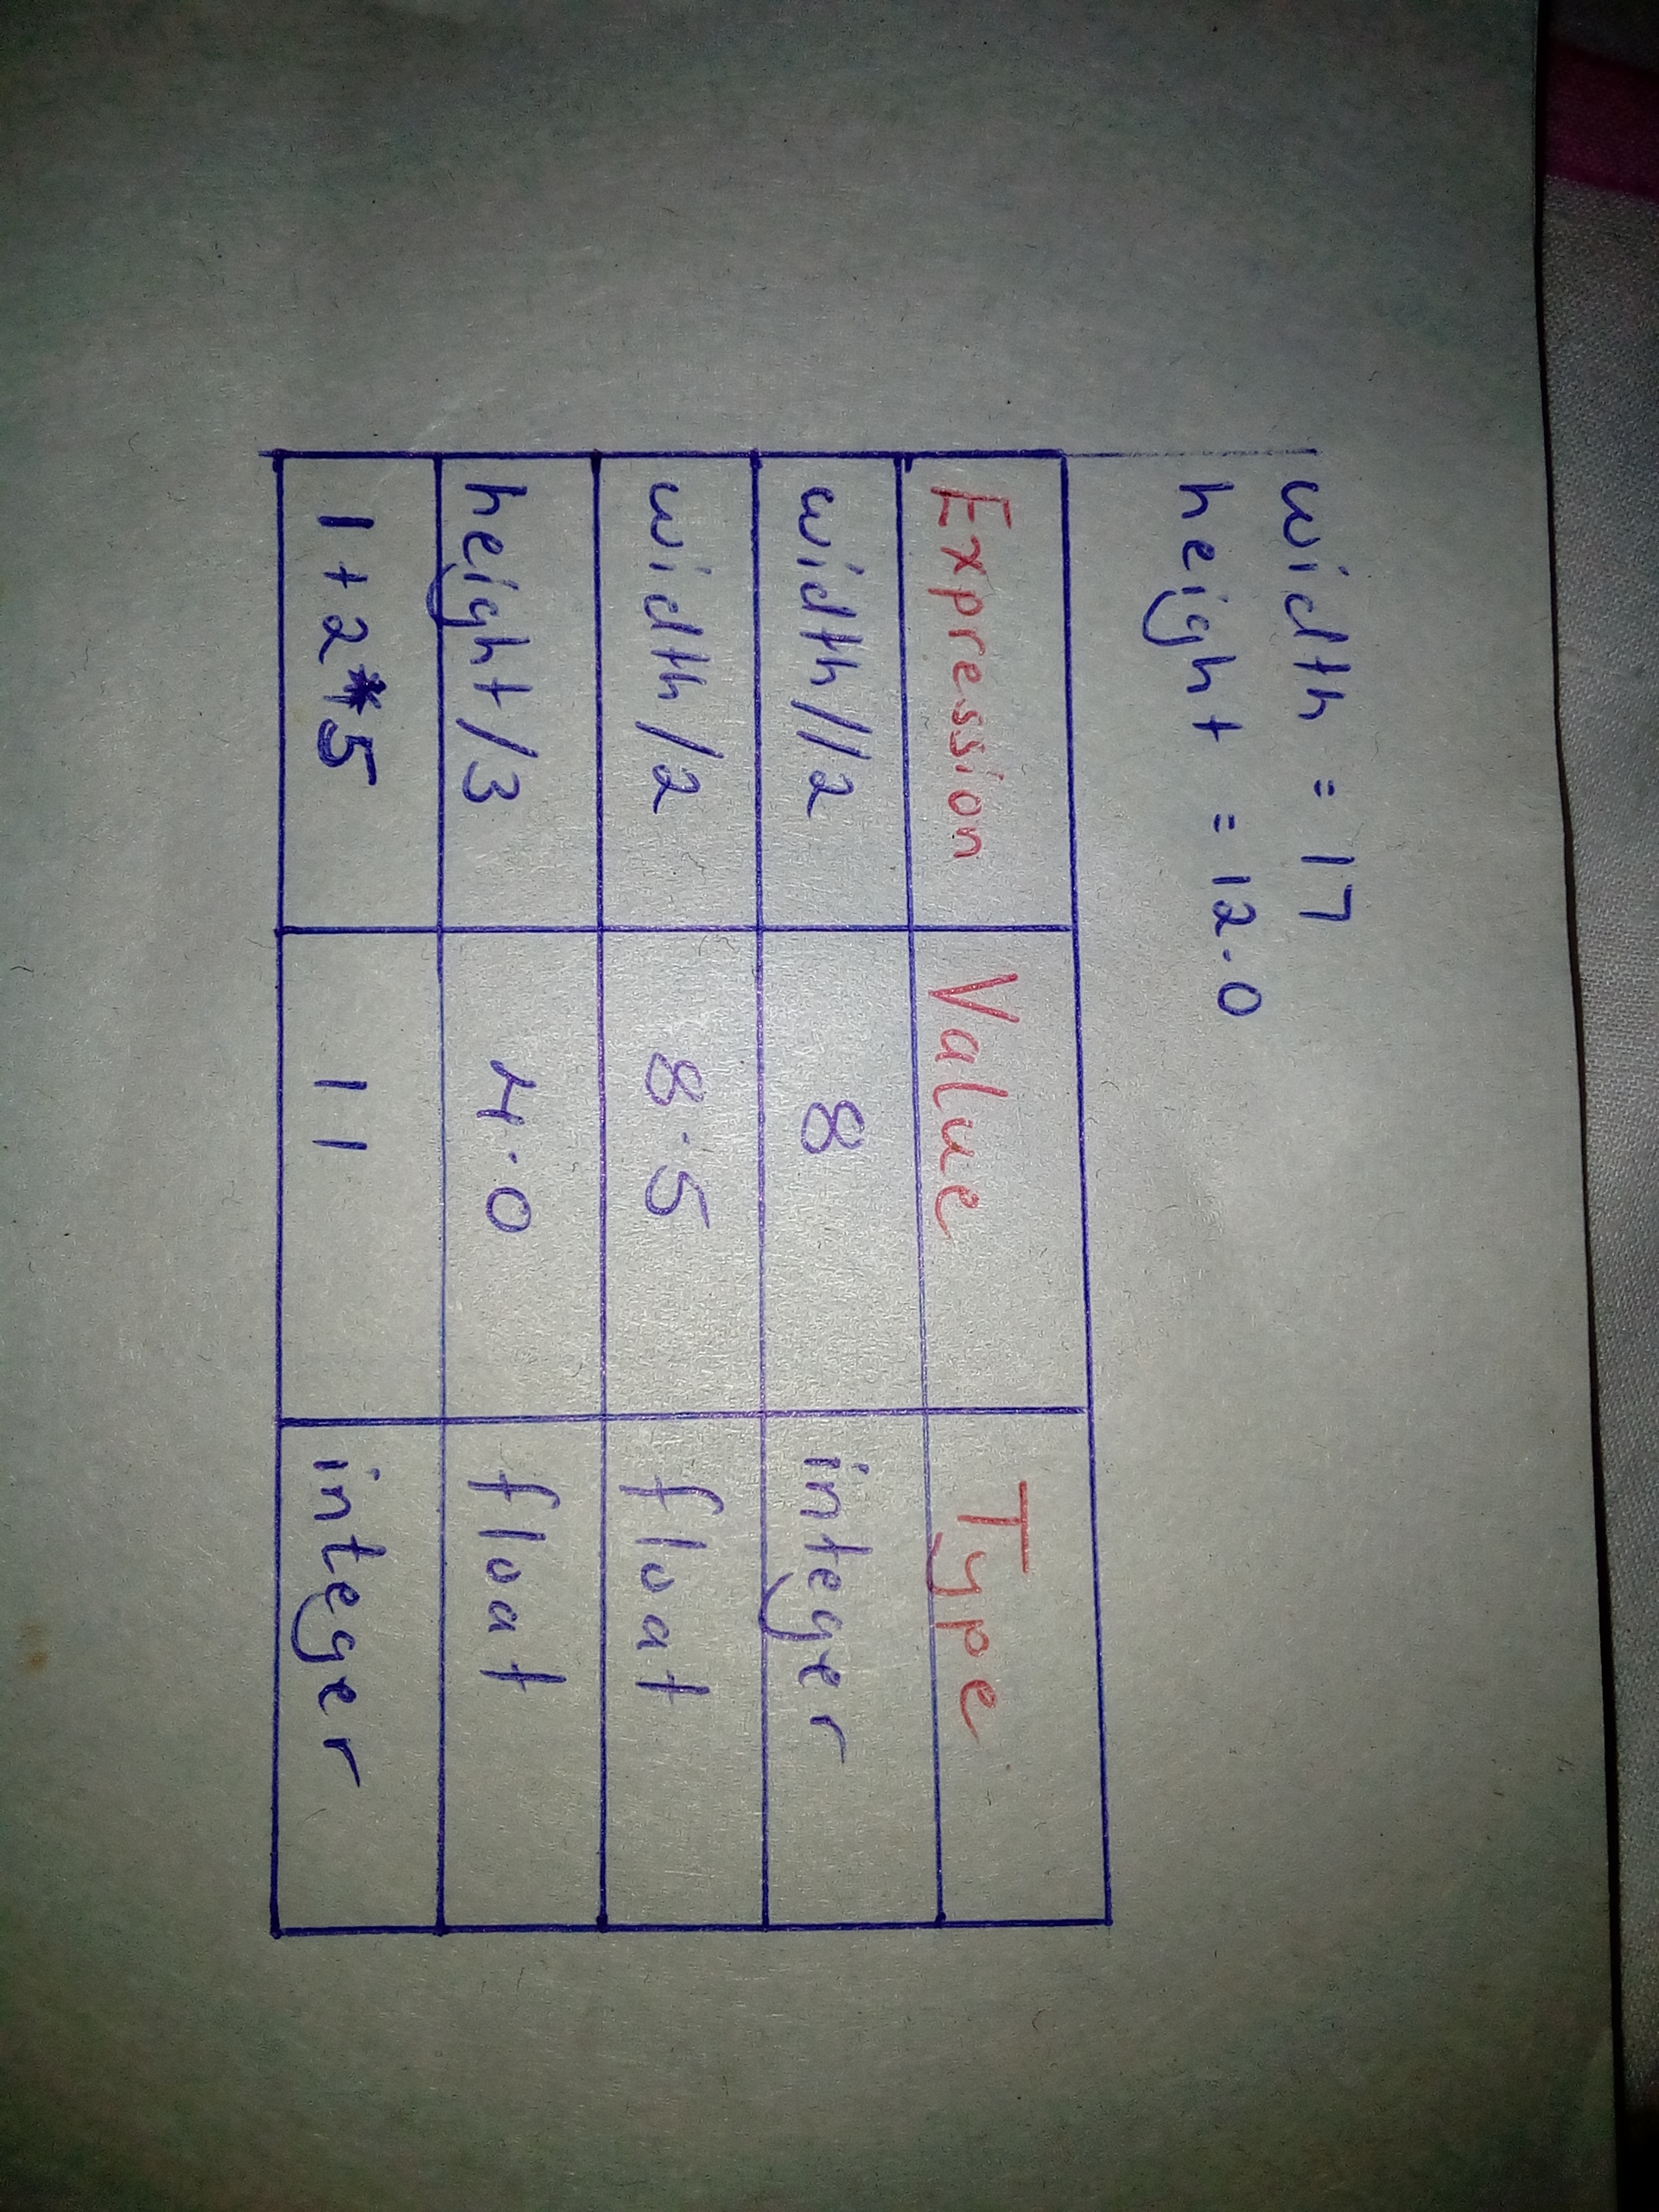 width = 17
height = 12.0
Expression Value Type
width//2 8 integer
width/2 8.5 float
height/3 4.0 float
1+2*5 11 integer